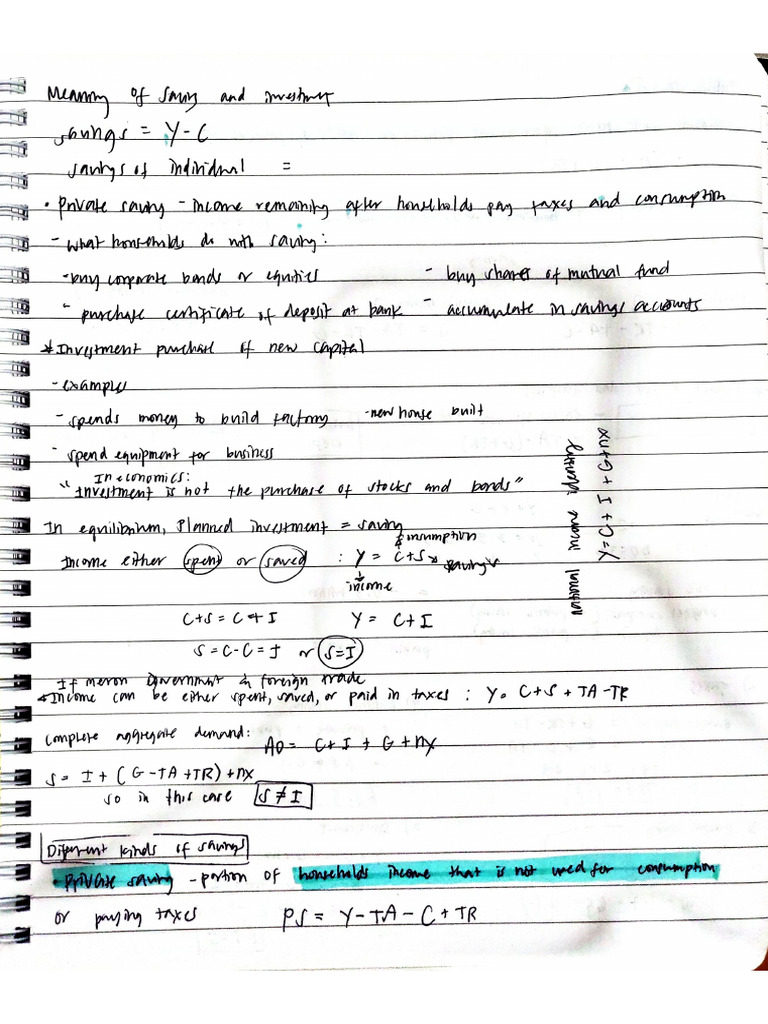 Meaning of saving and investment
savings = Y - C
savings of individual =
• Private saving - income remaining after households pay taxes and consumption
- what households do with saving:
- buy corporate bonds or equities - buy shares of mutual fund
- purchase certificate of deposit at bank - accumulate in savings accounts
* Investment purchase of new capital
- examples
- spends money to build factory - new house built
- spend equipment for business
In economics:
"Investment is not the purchase of stocks and bonds"
In equilibrium, planned investment = saving
consumption
Income either spent or saved : Y = C + S savings
income
C+S = C+I Y = C+I
S = C-C = I or S=I
national income identity
Y = C + I + G + NX
If meron government & foreign trade
Income can be either spent, saved, or paid in taxes : Y = C + S + TA - TR
complete aggregate demand: AD = C + I + G + NX
S = I + (G - TA + TR) + NX
so in this case S ≠ I
Different kinds of savings
• Private saving - portion of households income that is not used for consumption
or paying taxes PS = Y - TA - C + TR